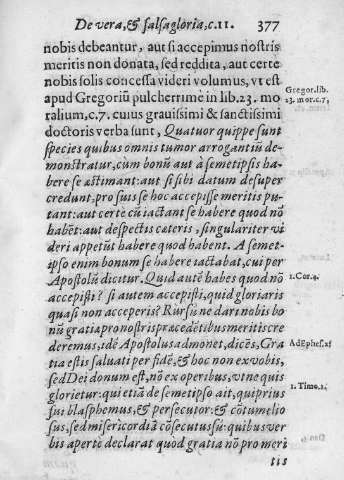 De vera, & falsa gloria, c.11. 377
nobis debeantur, aut si accepimus nostris
meritis non donata, sed reddita, aut certe
nobis solis concessa videri volumus, vt est
apud Gregoriũ pulcherrimè in lib.23. mo
Gregor. lib.
23. mor. c.7,
ralium, c.7. cuius grauissimi & sanctissimi
doctoris verba sunt, Quatuor quippe sunt
species quibus omnis tumor arrogantiũ de-
monstratur, cum bonũ aut à semetipsis ha-
bere se æstimant: aut si sibi datum desuper
credunt, pro suis se hoc accepisse meritis pu-
tant: aut certe cũ iactant se habere quod nõ
habẽt: aut despectis cæteris, singulariter vi
deri appetũt habere quod habent. A semet-
ipso enim bonum se habere iactabat, cui per
Apostolũ dicitur. Quid autẽ habes quod nõ
1. Cor. 4.
accepisti? si autem accepisti, quid gloriaris
quasi non acceperis? Rursũ ne dari nobis bo
nũ gratia pro nostris præcedẽtibus meritis cre
deremus, idẽ Apostolus admonet, dicẽs, Gra
Ad Ephes. 2
tia estis saluati per fidẽ, & hoc non ex vobis,
sed Dei donum est, nõ ex operibus, vt ne quis
glorietur: qui etiã de semetipso ait, qui prius
1. Timo. 1.
fui blasphemus, & persecutor: & cõtumelio
sus, sed misericordiã cõsecutus sũ: quibus ver
bis apertè declarat quòd gratia nõ pro meri
tis